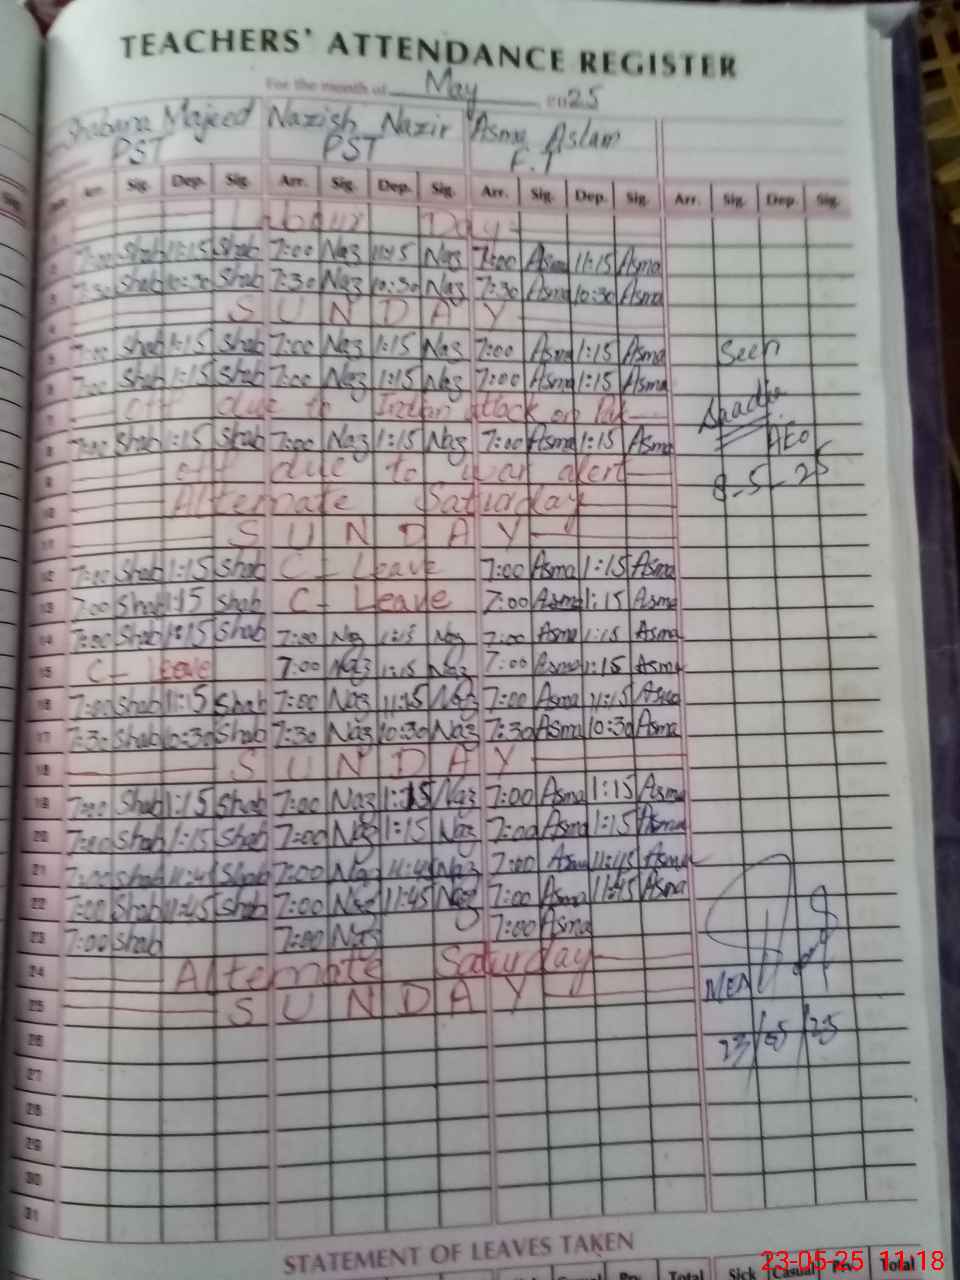 TEACHERS' ATTENDANCE REGISTER
For the month of May 2025
Shabana Majeed Nazish Nazir Asma Aslam
PST PST F.T
Arr. Sig. Dep. Sig. Arr. Sig. Dep. Sig. Arr. Sig. Dep. Sig. Arr. Sig. Dep. Sig.
1 Labour Day
2 7:00 Shab 11:15 Shab 7:00 Naz 11:15 Naz 7:00 Asma 11:15 Asma
3 7:30 Shab 10:30 Shab 7:30 Naz 10:30 Naz 7:30 Asma 10:30 Asma
4 SUNDAY
5 7:00 Shab 1:15 Shab 7:00 Naz 1:15 Naz 7:00 Asma 1:15 Asma Seen
6 7:00 Shab 1:15 Shab 7:00 Naz 1:15 Naz 7:00 Asma 1:15 Asma
7 Off due to Indian attack on Pak Saadia
8 7:00 Shab 1:15 Shab 7:00 Naz 1:15 Naz 7:00 Asma 1:15 Asma AEO
9 off due to war alert 8-5-25
10 Alternate Saturday
11 SUNDAY
12 7:00 Shab 1:15 Shab C-Leave 7:00 Asma 1:15 Asma
13 7:00 Shab 1:15 Shab C-Leave 7:00 Asma 1:15 Asma
14 7:00 Shab 1:15 Shab 7:00 Naz 1:15 Naz 7:00 Asma 1:15 Asma
15 C-Leave 7:00 Naz 1:15 Naz 7:00 Asma 1:15 Asma
16 7:00 Shab 11:15 Shab 7:00 Naz 11:15 Naz 7:00 Asma 11:15 Asma
17 7:30 Shab 10:30 Shab 7:30 Naz 10:30 Naz 7:30 Asma 10:30 Asma
18 SUNDAY
19 7:00 Shab 1:15 Shab 7:00 Naz 1:15 Naz 7:00 Asma 1:15 Asma
20 7:00 Shab 1:15 Shab 7:00 Naz 1:15 Naz 7:00 Asma 1:15 Asma
21 7:00 Shab Shab 7:00 Naz Naz 7:00 Asma 11:45 Asma
22 7:00 Shab 11:45 Shab 7:00 Naz 11:45 Naz 7:00 Asma 11:45 Asma
23 7:00 Shab 7:00 Naz 7:00 Asma
24 Alternate Saturday MEA
25 SUNDAY
26 23/05/25
27
28
29
30
31
STATEMENT OF LEAVES TAKEN
Total Sick Casual Prv. Total
23-05-25 11:18